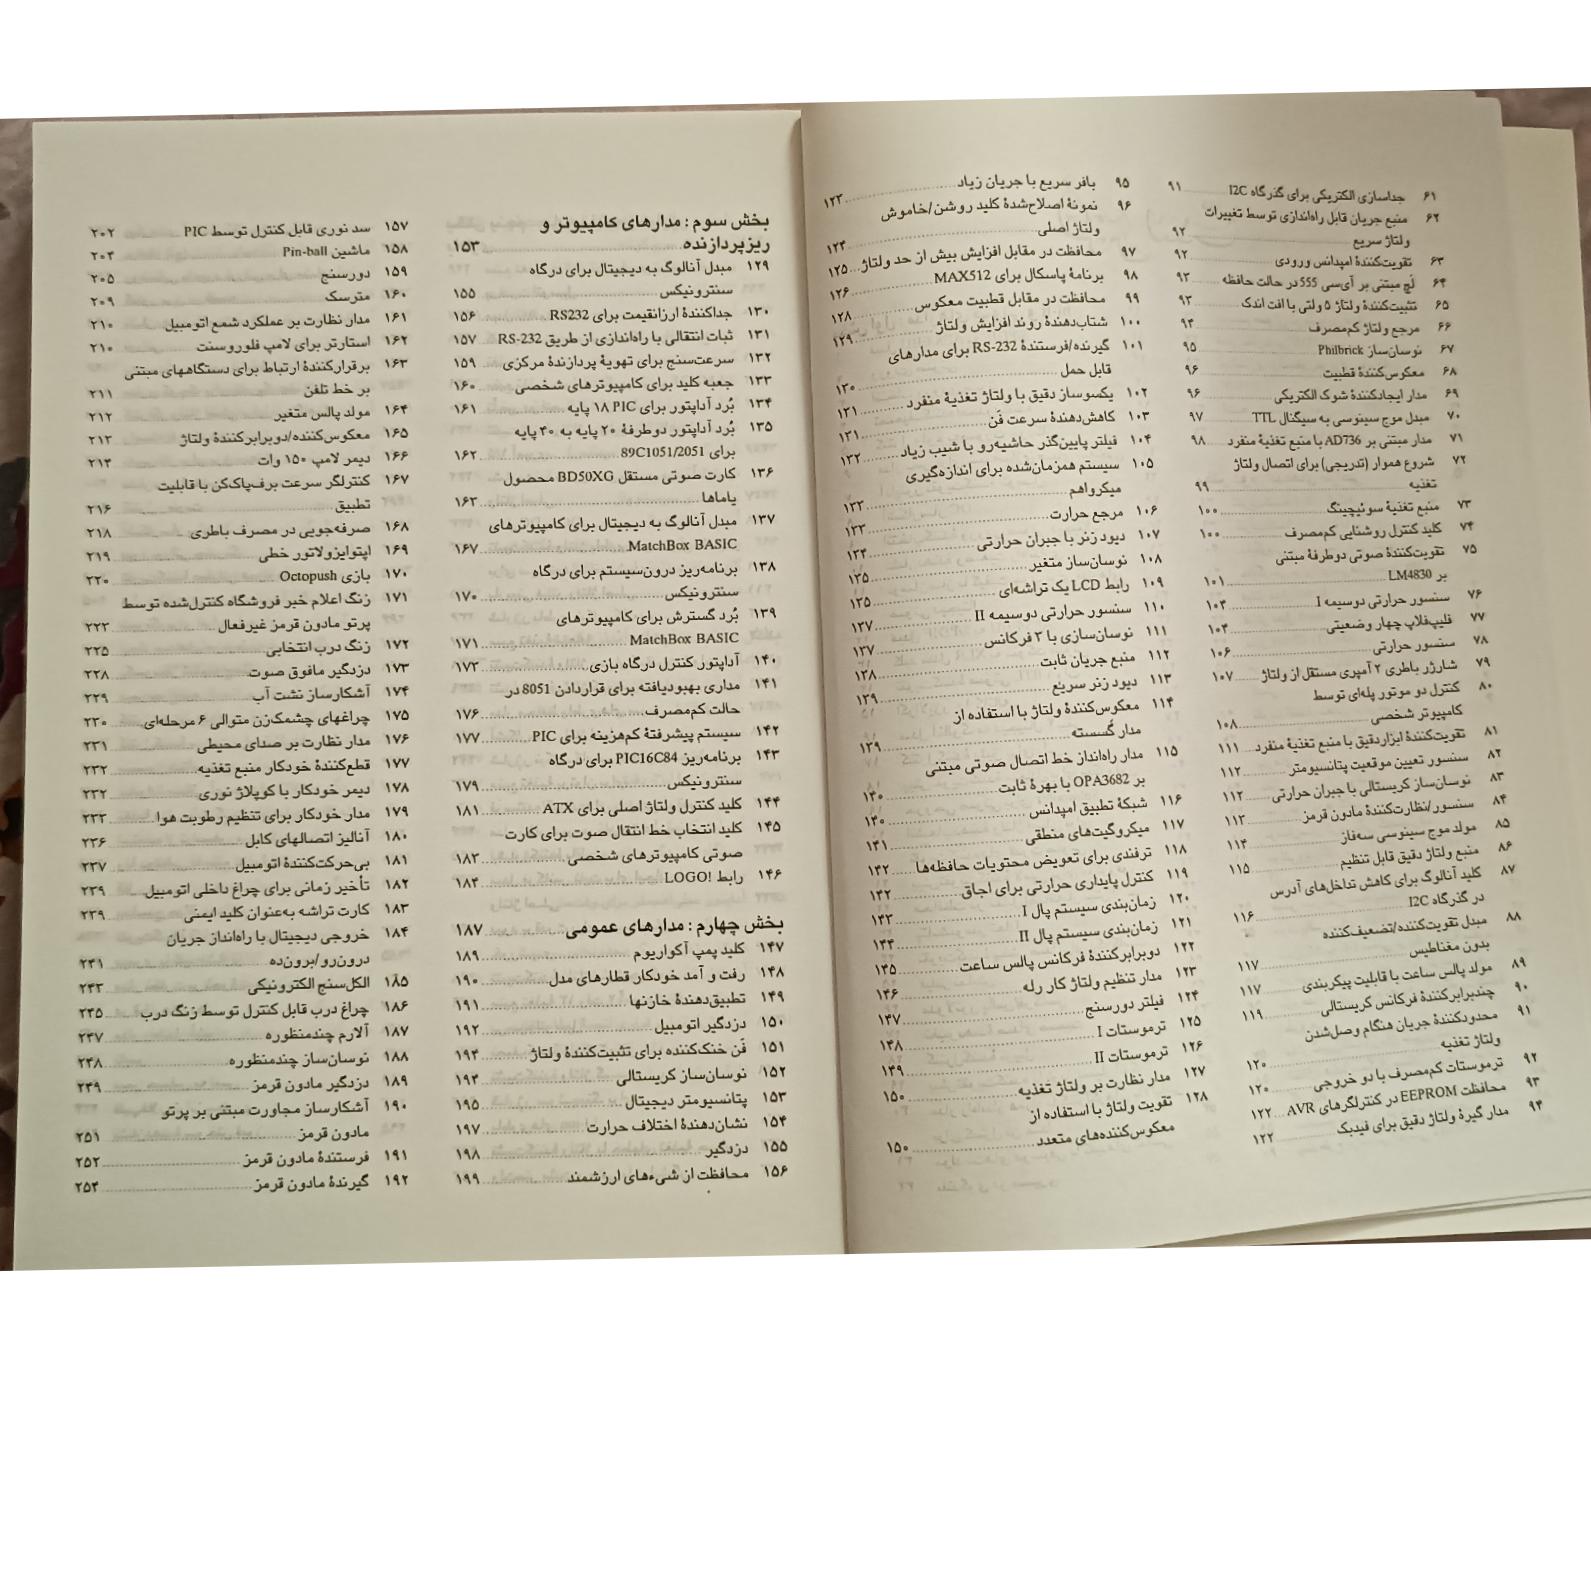 ۶۱ جداسازی الکتریکی برای گذرگاه I2C ۹۱
۶۲ منبع جریان قابل راه‌اندازی توسط تغییرات
ولتاژ سریع ۹۲
۶۳ تقویت‌کنندهٔ امپدانس ورودی ۹۲
۶۴ لَچ مبتنی بر آی‌سی 555 در حالت حافظه ۹۳
۶۵ تثبیت‌کنندهٔ ولتاژ ۵ ولتی با افت اندک ۹۳
۶۶ مرجع ولتاژ کم‌مصرف ۹۴
۶۷ نوسان‌ساز Philbrick ۹۵
۶۸ معکوس‌کنندهٔ قطبیت ۹۶
۶۹ مدار ایجادکنندهٔ شوک الکتریکی ۹۶
۷۰ مبدل موج سینوسی به سیگنال TTL ۹۷
۷۱ مدار مبتنی بر AD736 با منبع تغذیهٔ منفرد ۹۸
۷۲ شروع هموار (تدریجی) برای اتصال ولتاژ
تغذیه ۹۹
۷۳ منبع تغذیهٔ سوئیچینگ ۱۰۰
۷۴ کلید کنترل روشنایی کم‌مصرف ۱۰۰
۷۵ تقویت‌کنندهٔ صوتی دوطرفهٔ مبتنی
بر LM4830 ۱۰۱
۷۶ سنسور حرارتی دوسیمه I ۱۰۴
۷۷ فلیپ‌فلاپ چهار وضعیتی ۱۰۴
۷۸ سنسور حرارتی ۱۰۶
۷۹ شارژر باطری ۲ آمپری مستقل از ولتاژ ۱۰۷
۸۰ کنترل دو موتور پله‌ای توسط
کامپیوتر شخصی ۱۰۸
۸۱ تقویت‌کنندهٔ ابزاردقیق با منبع تغذیهٔ منفرد ۱۱۱
۸۲ سنسور تعیین موقعیت پتانسیومتر ۱۱۲
۸۳ نوسان‌ساز کریستالی با جبران حرارتی ۱۱۲
۸۴ سنسور/نظارت‌کنندهٔ مادون قرمز ۱۱۳
۸۵ مولد موج سینوسی سه‌فاز ۱۱۴
۸۶ منبع ولتاژ دقیق قابل تنظیم ۱۱۵
۸۷ کلید آنالوگ برای کاهش تداخل‌های آدرس
در گذرگاه I2C ۱۱۶
۸۸ مبدل تقویت‌کننده/تضعیف‌کننده
بدون مغناطیس ۱۱۷
۸۹ مولد پالس ساعت با قابلیت پیکربندی ۱۱۷
۹۰ چندبرابرکنندهٔ فرکانس کریستالی ۱۱۹
۹۱ محدودکنندهٔ جریان هنگام وصل‌شدن
ولتاژ تغذیه ۱۲۰
۹۲ ترموستات کم‌مصرف با دو خروجی ۱۲۰
۹۳ محافظت EEPROM در کنترلگرهای AVR ۱۲۲
۹۴ مدار گیرهٔ ولتاژ دقیق برای فیدبک ۱۲۲
۹۵ بافر سریع با جریان زیاد ۱۲۳
۹۶ نمونهٔ اصلاح‌شدهٔ کلید روشن/خاموش
ولتاژ اصلی ۱۲۴
۹۷ محافظت در مقابل افزایش بیش از حد ولتاژ ۱۲۵
۹۸ برنامهٔ پاسکال برای MAX512 ۱۲۶
۹۹ محافظت در مقابل قطبیت معکوس ۱۲۸
۱۰۰ شتاب‌دهندهٔ روند افزایش ولتاژ ۱۲۹
۱۰۱ گیرنده/فرستندهٔ RS-232 برای مدارهای
قابل حمل ۱۳۰
۱۰۲ یکسوساز دقیق با ولتاژ تغذیهٔ منفرد ۱۳۱
۱۰۳ کاهش‌دهندهٔ سرعت فَن ۱۳۱
۱۰۴ فیلتر پایین‌گذر حاشیه‌رو با شیب زیاد ۱۳۲
۱۰۵ سیستم همزمان‌شده برای اندازه‌گیری
میکرواهم ۱۳۳
۱۰۶ مرجع حرارت ۱۳۳
۱۰۷ دیود زنر با جبران حرارتی ۱۳۴
۱۰۸ نوسان‌ساز متغیر ۱۳۵
۱۰۹ رابط LCD یک تراشه‌ای ۱۳۵
۱۱۰ سنسور حرارتی دوسیمه II ۱۳۷
۱۱۱ نوسان‌سازی با ۲ فرکانس ۱۳۷
۱۱۲ منبع جریان ثابت ۱۳۸
۱۱۳ دیود زنر سریع ۱۳۹
۱۱۴ معکوس‌کنندهٔ ولتاژ با استفاده از
مدار گسسته ۱۳۹
۱۱۵ مدار راه‌انداز خط اتصال صوتی مبتنی
بر OPA3682 با بهرهٔ ثابت ۱۴۰
۱۱۶ شبکهٔ تطبیق امپدانس ۱۴۰
۱۱۷ میکروگیت‌های منطقی ۱۴۱
۱۱۸ ترفندی برای تعویض محتویات حافظه‌ها ۱۴۲
۱۱۹ کنترل پایداری حرارتی برای اجاق ۱۴۲
۱۲۰ زمان‌بندی سیستم پال I ۱۴۳
۱۲۱ زمان‌بندی سیستم پال II ۱۴۴
۱۲۲ دوبرابرکنندهٔ فرکانس پالس ساعت ۱۴۵
۱۲۳ مدار تنظیم ولتاژ کار رله ۱۴۶
۱۲۴ فیلتر دورسنج ۱۴۷
۱۲۵ ترموستات I ۱۴۸
۱۲۶ ترموستات II ۱۴۹
۱۲۷ مدار نظارت بر ولتاژ تغذیه ۱۵۰
۱۲۸ تقویت ولتاژ با استفاده از
معکوس‌کننده‌های متعدد ۱۵۰
بخش سوم : مدارهای کامپیوتر و
ریزپردازنده ۱۵۳
۱۲۹ مبدل آنالوگ به دیجیتال برای درگاه
سنترونیکس ۱۵۵
۱۳۰ جداکنندهٔ ارزانقیمت برای RS232 ۱۵۶
۱۳۱ ثبات انتقالی با راه‌اندازی از طریق RS-232 ۱۵۷
۱۳۲ سرعت‌سنج برای تهویهٔ پردازندهٔ مرکزی ۱۵۹
۱۳۳ جعبه کلید برای کامپیوترهای شخصی ۱۶۰
۱۳۴ بُرد آداپتور برای PIC ۱۸ پایه ۱۶۱
۱۳۵ بُرد آداپتور دوطرفهٔ ۲۰ پایه به ۴۰ پایه
برای 89C1051/2051 ۱۶۲
۱۳۶ کارت صوتی مستقل BD50XG محصول
یاماها ۱۶۳
۱۳۷ مبدل آنالوگ به دیجیتال برای کامپیوترهای
MatchBox BASIC ۱۶۷
۱۳۸ برنامه‌ریز درون‌سیستم برای درگاه
سنترونیکس ۱۷۰
۱۳۹ بُرد گسترش برای کامپیوترهای
MatchBox BASIC ۱۷۱
۱۴۰ آداپتور کنترل درگاه بازی ۱۷۳
۱۴۱ مداری بهبودیافته برای قراردادن 8051 در
حالت کم‌مصرف ۱۷۶
۱۴۲ سیستم پیشرفتهٔ کم‌هزینه برای PIC ۱۷۷
۱۴۳ برنامه‌ریز PIC16C84 برای درگاه
سنترونیکس ۱۷۹
۱۴۴ کلید کنترل ولتاژ اصلی برای ATX ۱۸۱
۱۴۵ کلید انتخاب خط انتقال صوت برای کارت
صوتی کامپیوترهای شخصی ۱۸۳
۱۴۶ رابط LOGO! ۱۸۴
بخش چهارم : مدارهای عمومی ۱۸۷
۱۴۷ کلید پمپ آکواریوم ۱۸۹
۱۴۸ رفت و آمد خودکار قطارهای مدل ۱۹۰
۱۴۹ تطبیق‌دهندهٔ خازنها ۱۹۱
۱۵۰ دزدگیر اتومبیل ۱۹۲
۱۵۱ فَن خنک‌کننده برای تثبیت‌کنندهٔ ولتاژ ۱۹۴
۱۵۲ نوسان‌ساز کریستالی ۱۹۴
۱۵۳ پتانسیومتر دیجیتال ۱۹۵
۱۵۴ نشان‌دهندهٔ اختلاف حرارت ۱۹۷
۱۵۵ دزدگیر ۱۹۸
۱۵۶ محافظت از شیءهای ارزشمند ۱۹۹
۱۵۷ سد نوری قابل کنترل توسط PIC ۲۰۲
۱۵۸ ماشین Pin-ball ۲۰۴
۱۵۹ دورسنج ۲۰۵
۱۶۰ مترسک ۲۰۹
۱۶۱ مدار نظارت بر عملکرد شمع اتومبیل ۲۱۰
۱۶۲ استارتر برای لامپ فلوروسنت ۲۱۰
۱۶۳ برقرارکنندهٔ ارتباط برای دستگاههای مبتنی
بر خط تلفن ۲۱۱
۱۶۴ مولد پالس متغیر ۲۱۲
۱۶۵ معکوس‌کننده/دوبرابرکنندهٔ ولتاژ ۲۱۳
۱۶۶ دیمر لامپ ۱۵۰ وات ۲۱۴
۱۶۷ کنترلگر سرعت برف‌پاک‌کن با قابلیت
تطبیق ۲۱۶
۱۶۸ صرفه‌جویی در مصرف باطری ۲۱۸
۱۶۹ اپتوایزولاتور خطی ۲۱۹
۱۷۰ بازی Octopush ۲۲۰
۱۷۱ زنگ اعلام خبر فروشگاه کنترل‌شده توسط
پرتو مادون قرمز غیرفعال ۲۲۳
۱۷۲ زنگ درب انتخابی ۲۲۵
۱۷۳ دزدگیر مافوق صوت ۲۲۸
۱۷۴ آشکارساز نشت آب ۲۲۹
۱۷۵ چراغهای چشمک‌زن متوالی ۶ مرحله‌ای ۲۳۰
۱۷۶ مدار نظارت بر صدای محیطی ۲۳۱
۱۷۷ قطع‌کنندهٔ خودکار منبع تغذیه ۲۳۲
۱۷۸ دیمر خودکار با کوپلاژ نوری ۲۳۲
۱۷۹ مدار خودکار برای تنظیم رطوبت هوا ۲۳۳
۱۸۰ آنالیز اتصالهای کابل ۲۳۶
۱۸۱ بی‌حرکت‌کنندهٔ اتومبیل ۲۳۷
۱۸۲ تأخیر زمانی برای چراغ داخلی اتومبیل ۲۳۹
۱۸۳ کارت تراشه به‌عنوان کلید ایمنی ۲۳۹
۱۸۴ خروجی دیجیتال با راه‌انداز جریان
درون‌رو/برون‌ده ۲۴۱
۱۸۵ الکل‌سنج الکترونیکی ۲۴۳
۱۸۶ چراغ درب قابل کنترل توسط زنگ درب ۲۴۵
۱۸۷ آلارم چندمنظوره ۲۴۷
۱۸۸ نوسان‌ساز چندمنظوره ۲۴۸
۱۸۹ دزدگیر مادون قرمز ۲۴۹
۱۹۰ آشکارساز مجاورت مبتنی بر پرتو
مادون قرمز ۲۵۱
۱۹۱ فرستندهٔ مادون قرمز ۲۵۲
۱۹۲ گیرندهٔ مادون قرمز ۲۵۴